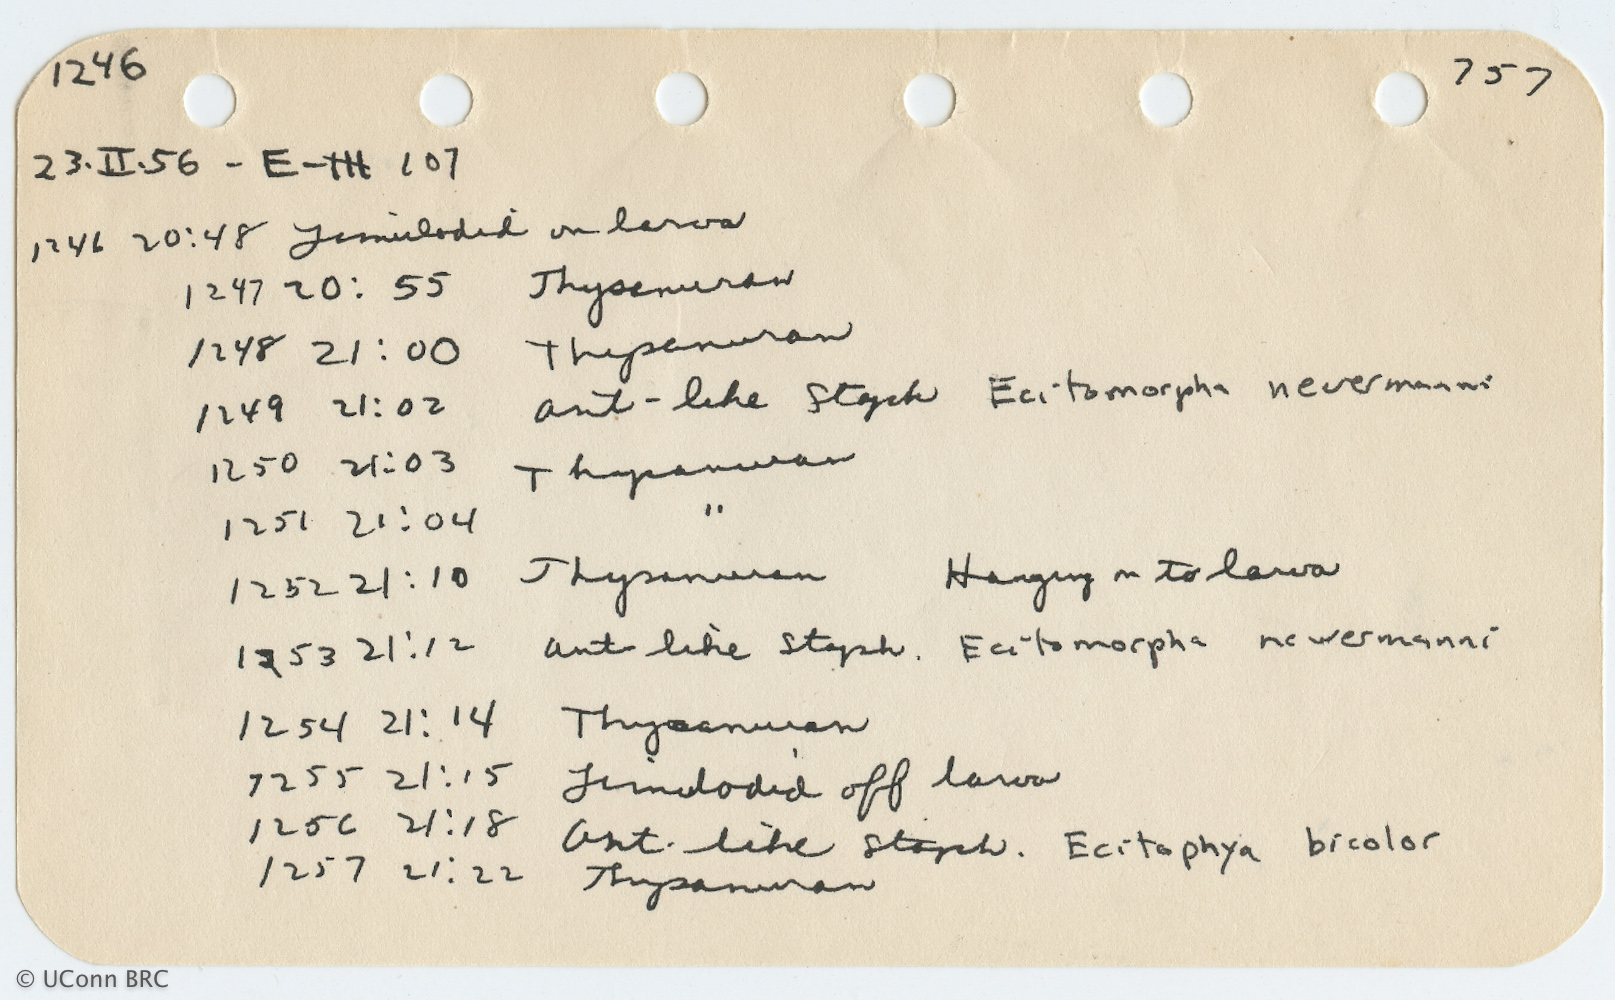 1246 757
23.II.56 - E-III 107
1246 20:48 Limulodid on larva
1247 20:55 Thysanuran
1248 21:00 Thysanuran
1249 21:02 Ant-like Staph Ecitomorpha nevermanni
1250 21:03 Thysanuran
1251 21:04 "
1252 21:10 Thysanuran Hanging on to larva
1253 21:12 Ant like Staph. Ecitomorpha nevermanni
1254 21:14 Thysanuran
1255 21:15 Limulodid off larva
1256 21:18 Ant-like Staph. Ecitophya bicolor
1257 21:22 Thysanuran
© UConn BRC